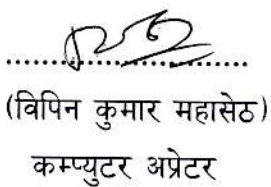 (विपिन कुमार महासेठ)
कम्प्युटर अप्रेटर